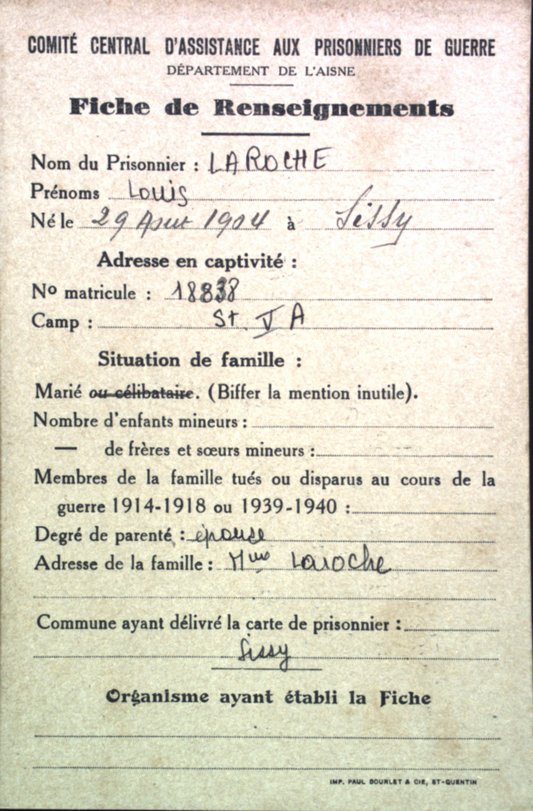 COMITÉ CENTRAL D'ASSISTANCE AUX PRISONNIERS DE GUERRE
DÉPARTEMENT DE L'AISNE
Fiche de Renseignements
Nom du Prisonnier : LAROCHE
Prénoms Louis
Né le 29 Aout 1904 à Sissy
Adresse en captivité :
No matricule : 18838
Camp : St. V A
Situation de famille :
Marié ou célibataire. (Biffer la mention inutile).
Nombre d'enfants mineurs :
— de frères et sœurs mineurs :
Membres de la famille tués ou disparus au cours de la
guerre 1914-1918 ou 1939-1940 :
Degré de parenté : épouse
Adresse de la famille : Mme Laroche
Commune ayant délivré la carte de prisonnier :
Sissy
Organisme ayant établi la Fiche
IMP. PAUL BOURLET & CIE, ST-QUENTIN